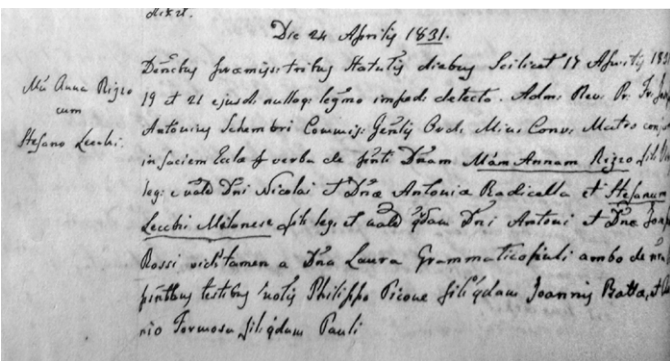 dixit.
Die 24 Aprilis 1831.
Ma Anna Rizzo
cum
Stefano Lecchi.
tribus statutis diebus Scilicet 17 Aprilis 1831
19 et 21 ejusd. nulloq. legmo imped. detecto. Adm. Rev. Pr. Fr.
Antonius Schembri Commis. Genlis Ord. Min. Conv. Matro conj.
in faciem Eccla verba de Dnam Mam Annam Rizzo fili
leg. Dni Nicolai et Dnæ Antonia Radicella et Stefanum
Lecchi Milanese fili leg. et Dni Antoni et Dnæ
Rossi a Dna Laura Grammaticopuli ambo de
testibus notis Philippo Picone fili qdam Joannis Batta, et
nio Formosa fili qdam Pauli